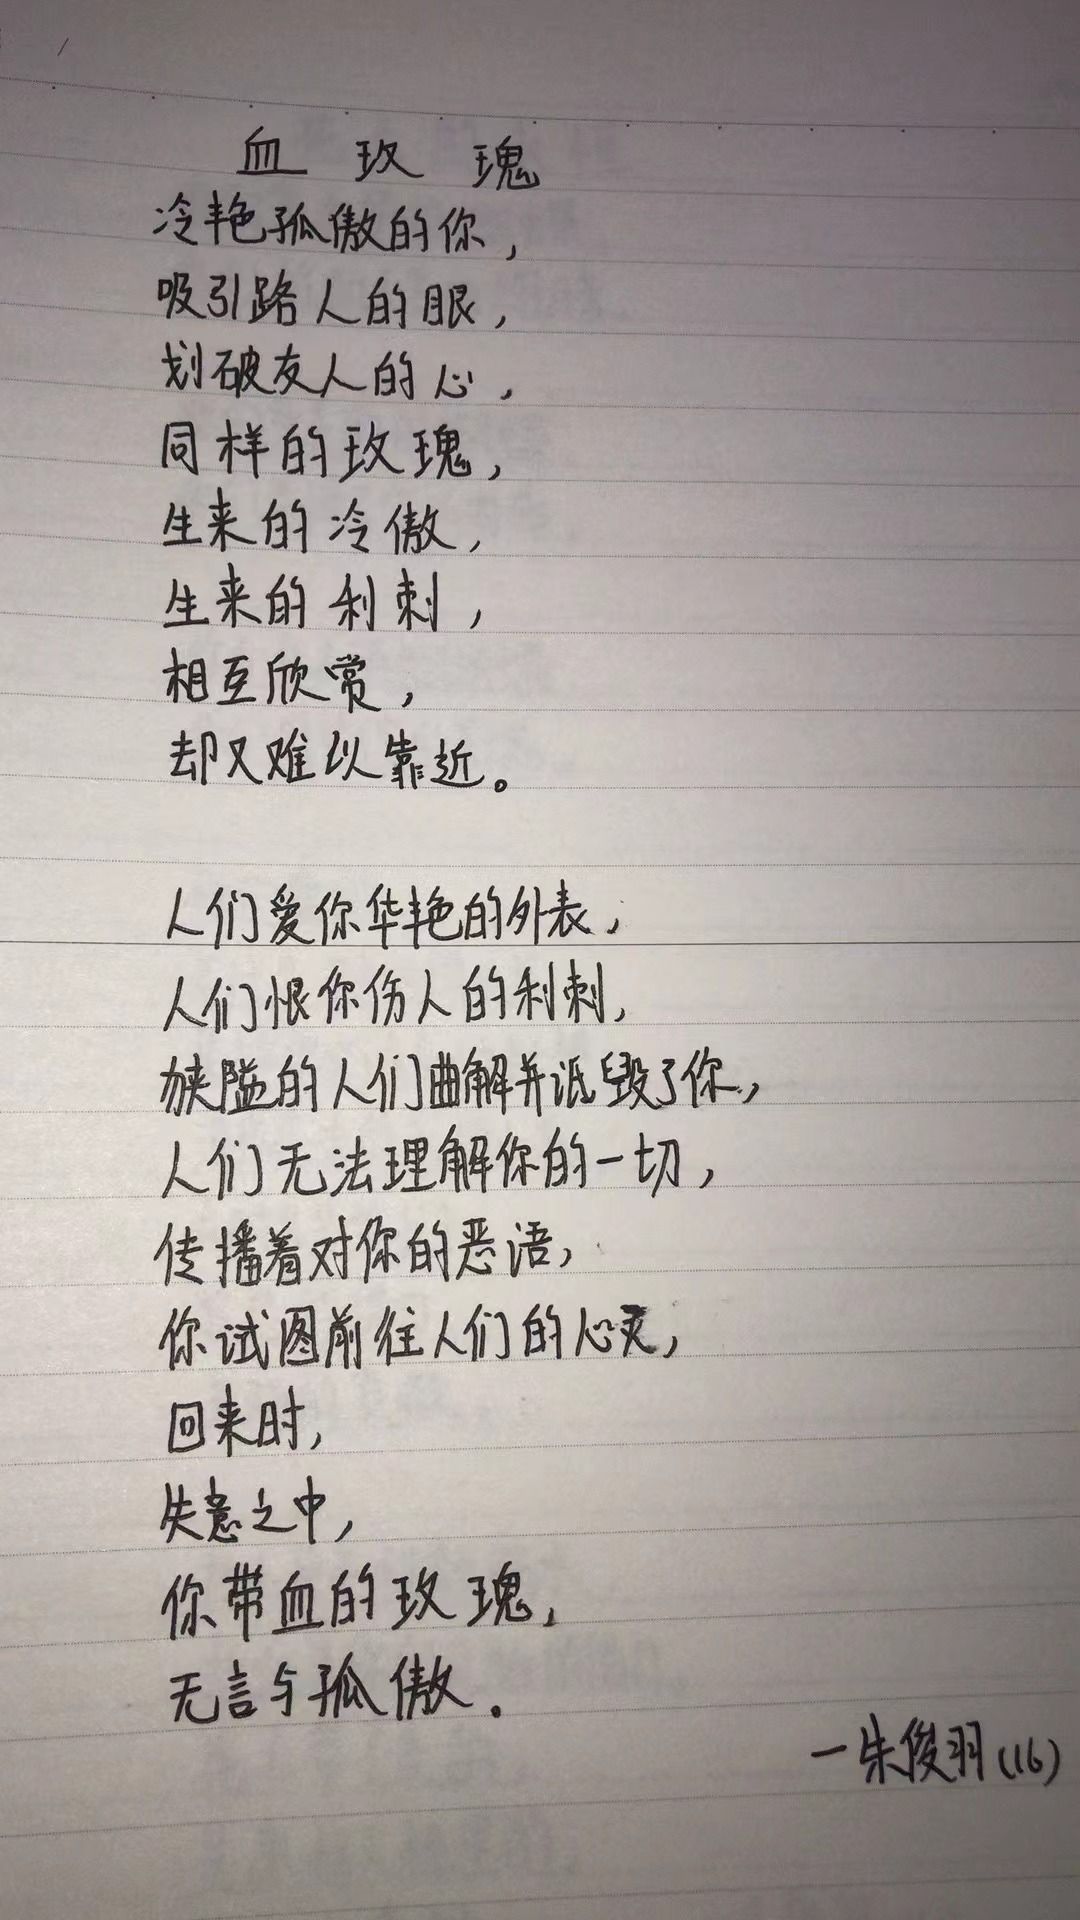 血玫瑰
冷艳孤傲的你，
吸引路人的眼，
划破友人的心，
同样的玫瑰，
生来的冷傲，
生来的利刺，
相互欣赏，
却又难以靠近。
人们爱你华艳的外表，
人们恨你伤人的利刺，
狭隘的人们曲解并诋毁了你，
人们无法理解你的一切，
传播着对你的恶语，
你试图前往人们的心灵，
回来时，
失意之中，
你带血的玫瑰，
无言与孤傲。
—朱俊羽(16)